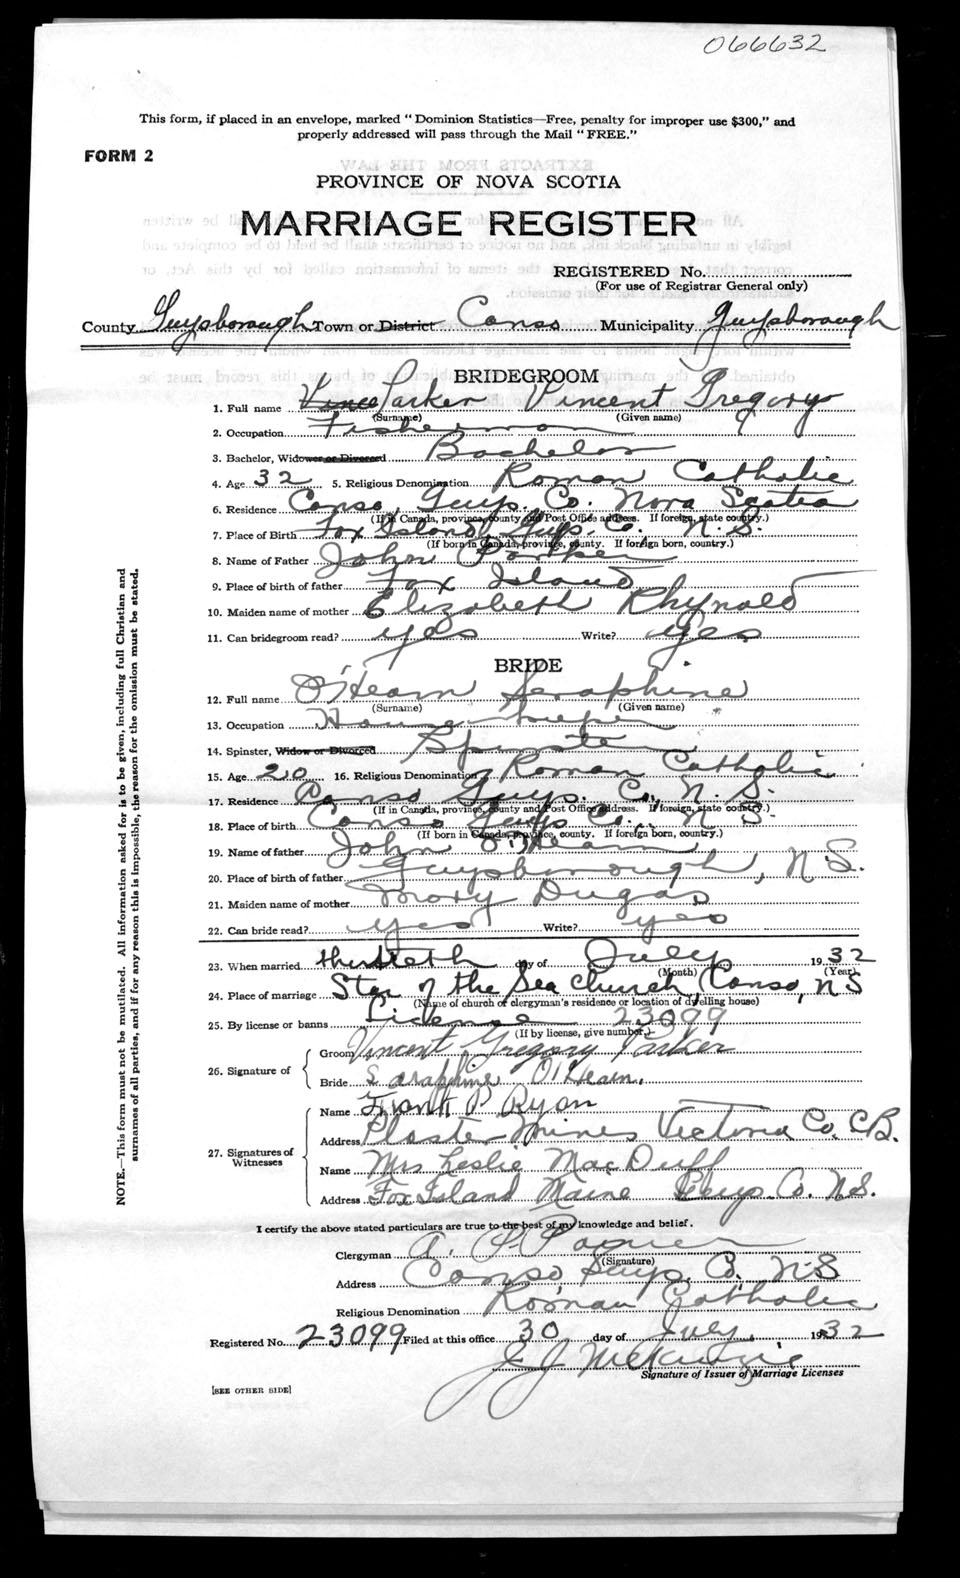 066632
This form, if placed in an envelope, marked "Dominion Statistics—Free, penalty for improper use $300," and
properly addressed will pass through the Mail "FREE."
FORM 2
PROVINCE OF NOVA SCOTIA
MARRIAGE REGISTER
REGISTERED No.
(For use of Registrar General only)
County Guysborough Town or District Canso Municipality Guysborough
BRIDEGROOM
1. Full name Vince Parker Vincent Gregory
(Surname) (Given name)
2. Occupation Fisherman
3. Bachelor, Widower or Divorced Bachelor
4. Age 32 5. Religious Denomination Roman Catholic
6. Residence Canso, Guys. Co. Nova Scotia
(If in Canada, province, county and Post Office address. If foreign, state country.)
7. Place of Birth Fox Island, Guys Co. N.S.
(If born in Canada, province, county. If foreign born, country.)
8. Name of Father John Parker
9. Place of birth of father Fox Island
10. Maiden name of mother Elizabeth Rhynold
11. Can bridegroom read? yes Write? yes
BRIDE
12. Full name O'Hearn Seraphine
(Surname) (Given name)
13. Occupation Housekeeper
14. Spinster, Widow or Divorced Spinster
15. Age 20 16. Religious Denomination Roman Catholic
17. Residence Canso Guys. Co., N. S.
(If in Canada, province, county and Post Office address. If foreign, state country.)
18. Place of birth Canso Guys Co. N S.
(If born in Canada, province, county. If foreign born, country.)
19. Name of father John O'Hearn
20. Place of birth of father Guysborough, N.S.
21. Maiden name of mother Mary Dugas
22. Can bride read? yes Write? yes
23. When married thirtieth day of July 1932
(Month) (Year)
24. Place of marriage Star of the Sea Church, Canso, NS
(Name of church or clergyman's residence or location of dwelling house)
25. By license or banns License 23099
(If by license, give number.)
26. Signature of
Groom Vincent Gregory Parker
Bride Saraphine O'Hearn.
27. Signatures of Witnesses
Name Frank P Ryan
Address Plaster Mines Victoria Co. C.B.
Name Mrs Leslie MacDuff
Address Fox Island Maine Guys. Co. N.S.
I certify the above stated particulars are true to the best of my knowledge and belief.
Clergyman A.
(Signature)
Address Canso Guys. Co. N.S
Religious Denomination Roman Catholic
Registered No. 23099 Filed at this office 30 day of July 1932
J J McKenzie
Signature of Issuer of Marriage Licenses
[SEE OTHER SIDE]
NOTE.—This form must not be mutilated. All information asked for is to be given, including full Christian and
surnames of all parties, and if for any reason this is impossible, the reason for the omission must be stated.